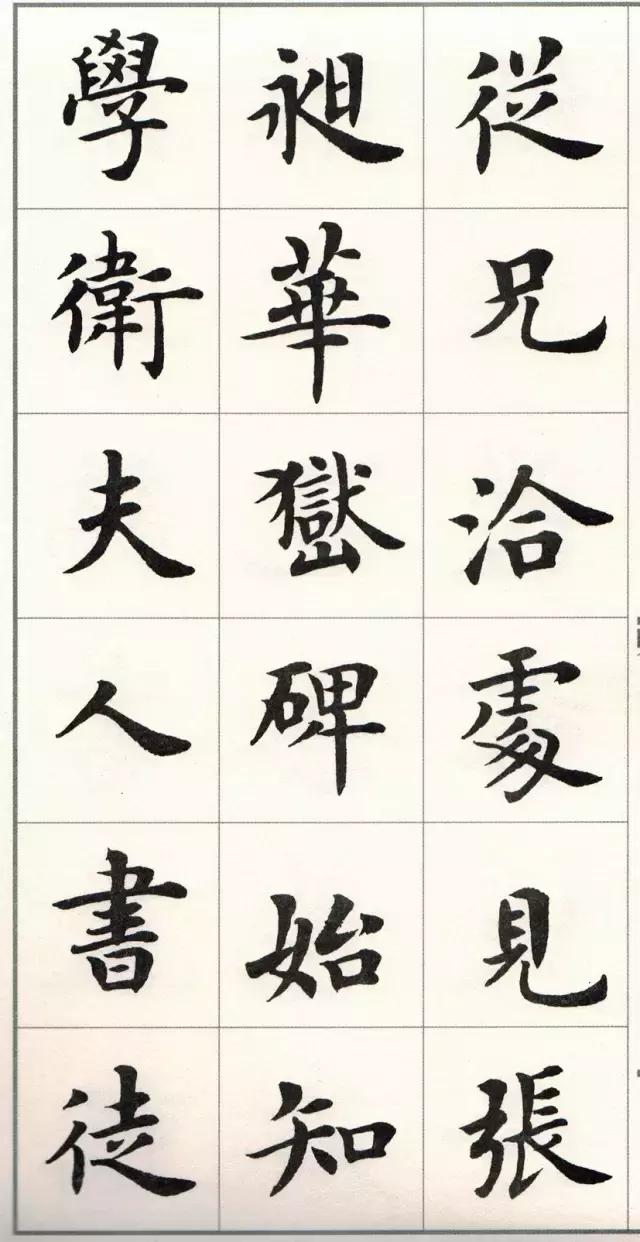 從兄洽處見張
昶華嶽碑始知
學衛夫人書徒